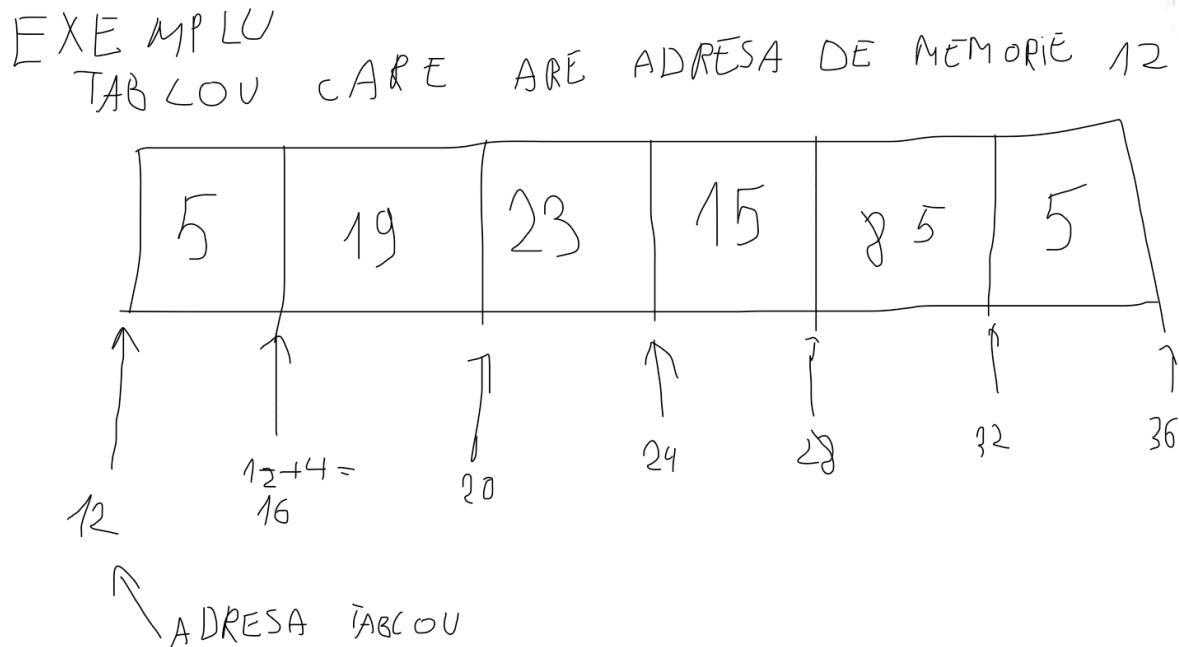 EXEMPLU
TABLOU CARE ARE ADRESA DE MEMORIE 12
5 19 23 15 85 5
12+4=
12 16 20 24 28 32 36
ADRESA TABLOU